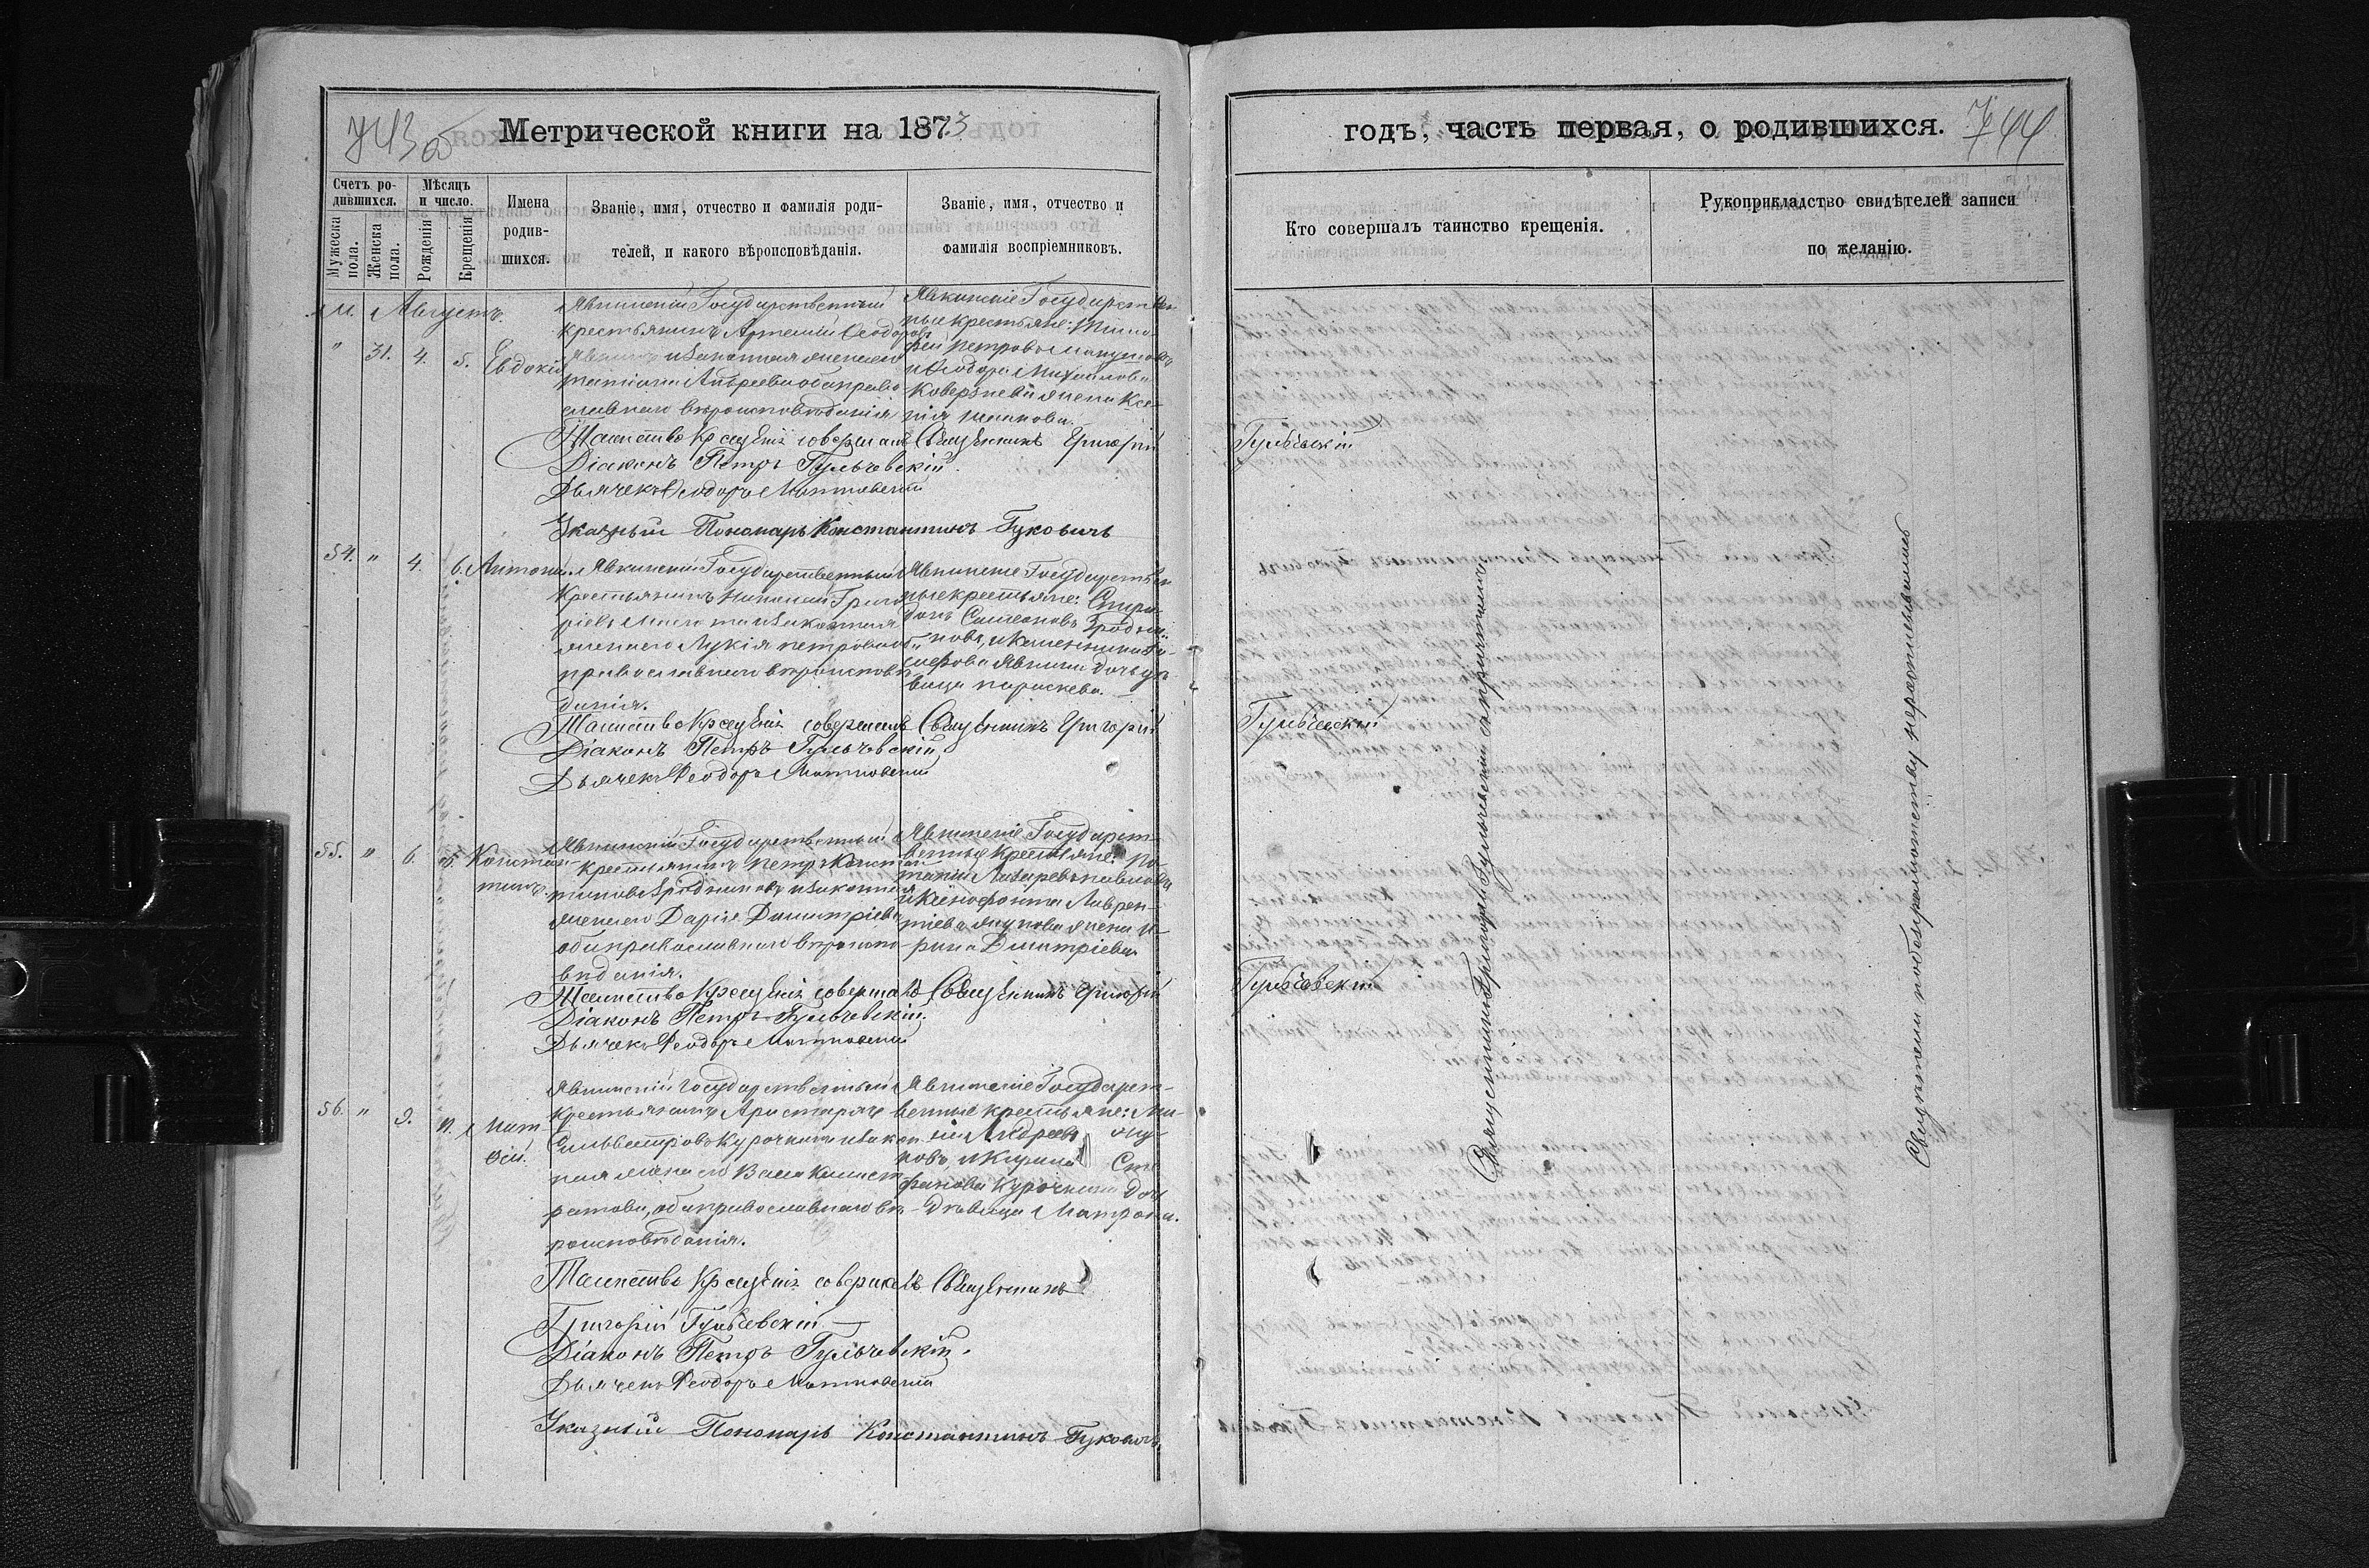 743 об
Метрической книги на 1873
годъ, часть первая, о родившихся.
744
Счетъ родившихся.
Мужеска пола.
Женска пола.
Мѣсяцъ и число.
Рожденія
Крещенія
Имена родившихся.
Званіе, имя, отчество и фамилія родителей, и какого вѣроисповѣданія.
Званіе, имя, отчество и фамилія воспріемниковъ.
Кто совершалъ таинство крещенія.
Рукоприкладство свидѣтелей записи по желанію.
М. Августъ.
" 31. 4. 5. Евдокія
Явкинскій Государственный
крестьянинъ Артемій Ѳеодоровъ
и законная жена его
Андреева оба право
славнаго вѣроисповѣданія
Явкинскіе Государствен
ные крестьяне: Тимо
фей Петровъ
и Ѳеодора Михайлова
жена Ксе
нія Иванова.
Таинство Крещенія совершалъ Священникъ Григорій Гульчевскій
Діаконъ Петръ Гульчевскій.
Дьячекъ Ѳеодоръ
Указный Пономарь Константинъ Гуковичъ
54. " 4. 6. Антоній.
Явкинскій Государственный
крестьянинъ Григо
рьевъ и законная
жена его Лукія Петрова оба
православнаго вѣроисповѣ
данія.
Явкинскіе Государствен
ные крестьяне: Спири
донъ Симеоновъ Бродни
ковъ, и
Явкина дочь дѣ
вица Параскева.
Таинство Крещенія совершалъ Священникъ Григорій Гульчевскій
Діаконъ Петръ Гульчевскій
Дьячекъ Ѳеодоръ
55. " 6. Констан
тинъ.
Явкинскій Государственный
крестьянинъ Петръ Констан
тиновъ Бродниковъ и законная
жена его Дарія Димитріева
оба православнаго вѣроиспо
вѣданія.
Явкинскіе Государст
венные крестьяне: По
тапій Лазаревъ
и Ксенофонта Лаврен
тіева жена И
рина Димитріева
Таинство Крещенія совершалъ Священникъ Григорій Гульчевскій
Діаконъ Петръ Гульчевскій.
Дьячекъ Ѳеодоръ
56. " 9. 11. Мат
ѳей.
Явкинскій Государственный
крестьянинъ Аристархъ
Сильвестровъ Курочкинъ и закон
ная жена его Васса Калист
ратова, оба православнаго вѣ
роисповѣданія.
Явкинскіе Государст
венные крестьяне:
Андреевъ
и Кирила Сте
фанова Курочкина дочь
дѣвица Матрона.
Таинство Крещенія совершалъ Священникъ
Григорій Гульчевскій
Діаконъ Петръ Гульчевскій.
Дьячекъ Ѳеодоръ
Указный Пономарь Константинъ Гуковичъ.
Священникъ Григорій Гульчевскій съ причтомъ.
Свидѣтели по безграмотству нерасписывались